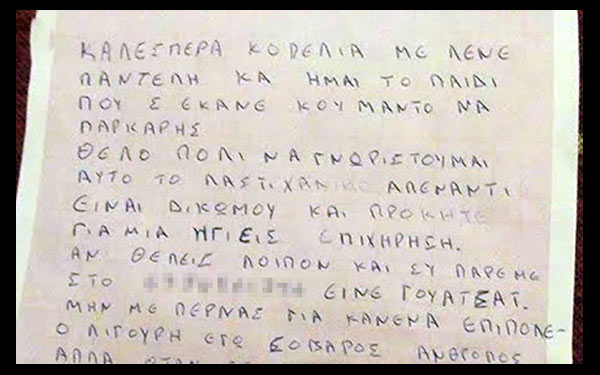 ΚΑΛΕΣΠΕΡΑ ΚΟΠΕΛΙΑ ΜΕ ΛΕΝΕ
ΠΑΝΤΕΛΗ ΚΑ ΗΜΑΙ ΤΟ ΠΑΙΔΙ
ΠΟΥ Σ ΕΚΑΝΕ ΚΟΥΜΑΝΤΟ ΝΑ
ΠΑΡΚΑΡΗΣ
ΘΕΛΟ ΠΟΛΙ ΝΑ ΓΝΩΡΙΣΤΟΥΜΑΙ
ΑΥΤΟ ΤΟ ΛΑΣΤΙΧΑΝΙΚΟ ΑΠΕΝΑΝΤΙ
ΕΙΝΑΙ ΔΙΚΩΜΟΥ ΚΑΙ ΠΡΟΚΗΤΕ
ΓΙΑ ΜΙΑ ΗΓΙΕΙΣ ΕΠΙΧΗΡΗΣΗ.
ΑΝ ΘΕΛΕΙΣ ΛΟΙΠΟΝ ΚΑΙ ΣΥ ΠΑΡΕ ΜΕ
ΣΤΟ ΕΙΝΕ ΓΟΥΑΤΣΑΤ.
ΜΗΝ ΜΕ ΠΕΡΝΑΣ ΓΙΑ ΚΑΝΕΝΑ ΕΠΙΠΟΛΕ-
Ο ΛΙΓΟΥΡΗ ΕΓΩ ΣΟΒΑΡΟΣ ΑΝΘΡΟΠΟΣ
ΑΛΛΑ